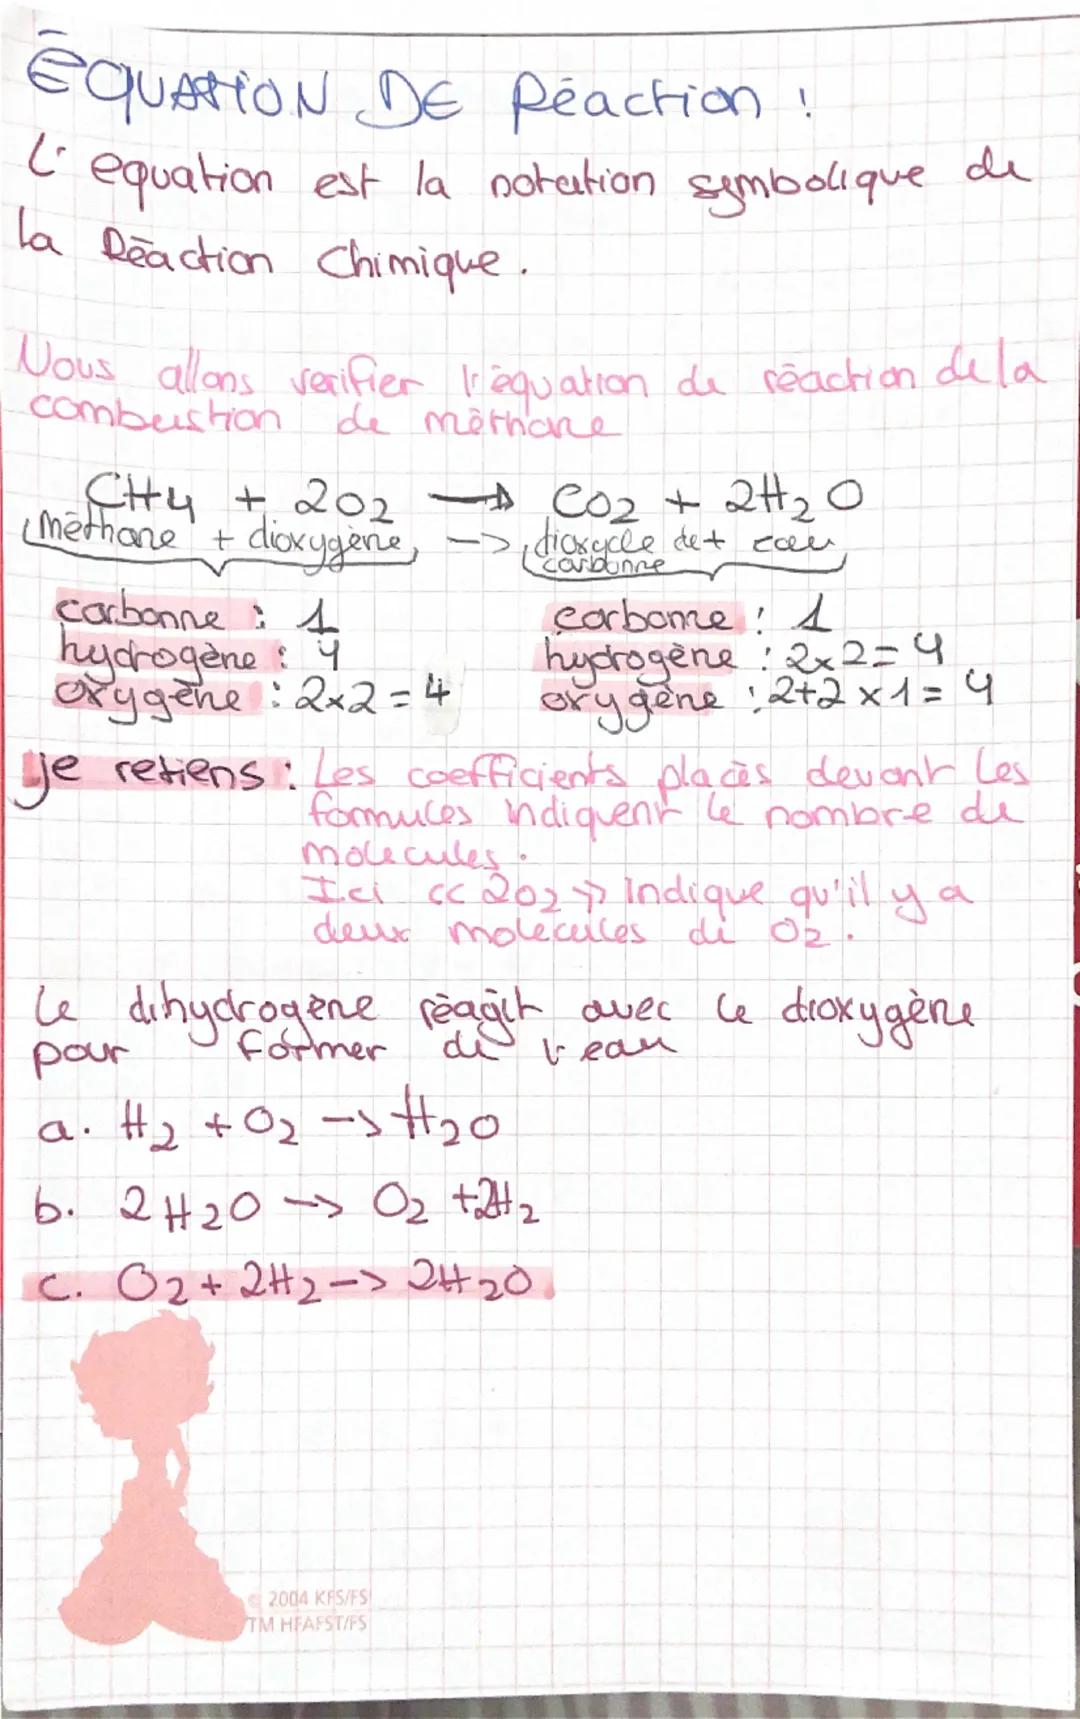 ÉQUATION DE Réaction :
L'equation est la notation symbolique de
la Réaction Chimique.
Nous allons verifier l'équation de réaction de la
combustion de méthane
CH4 + 2O2 → CO2 + 2H2O
méthane + dioxygène, -> dioxycle de + eau
carbonne
carbonne : 1 carbonne : 1
hydrogène : 4 hydrogène : 2x2=4
oxygène : 2x2=4 oxygène : 2+2x1=4
je retiens : Les coefficients placés devant les
formules indiquent le nombre de
molecules.
Ici << 2O2 >> Indique qu'il y a
deux molécules de O2.
Le dihydrogène réagit avec le dioxygène
pour former de l'eau
a. H2 + O2 -> H2O
b. 2H2O -> O2 +2H2
c. O2 + 2H2 -> 2H2O
© 2004 KFS/FS
TM HFAFST/FS